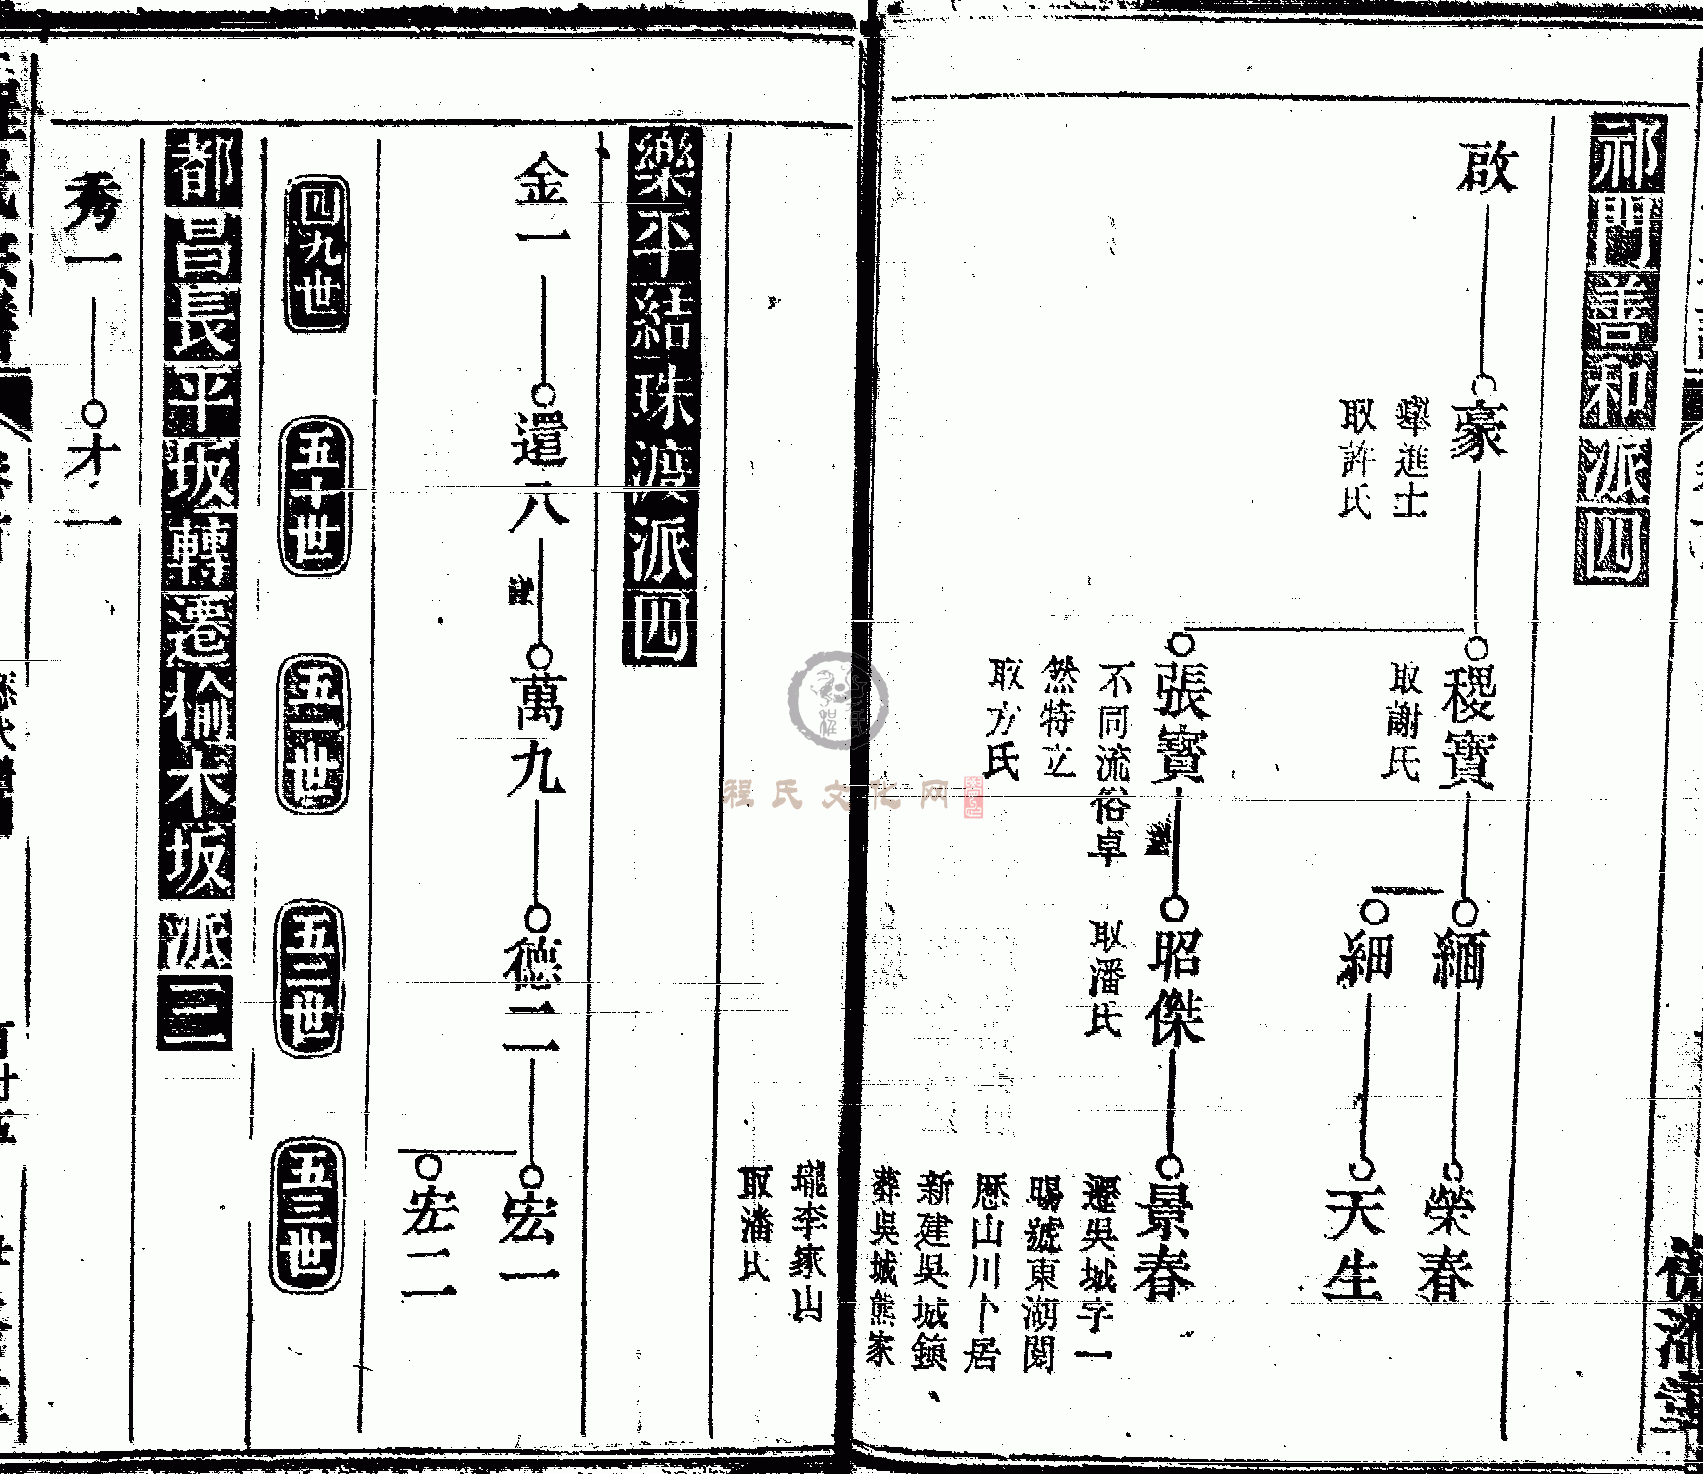 祁門善和派四
啟
豪
舉進士
取許氏
稷寶
取謝氏
張寶
不同流俗卓
然特立
取方氏
緬
細
昭傑
取潘氏
榮春
天生
景春
遷吳城字一
暘號東湖閱
歷山川卜居
新建吳城鎮
葬吳城熊家
壠李家山
取潘氏
樂平結珠渡派四
金一
還八
萬九
德二
宏一
宏二
四九世
五十世
五一世
五二世
五三世
都昌長平坂轉遷榆木坂派三
秀一
才一
程氏文化网